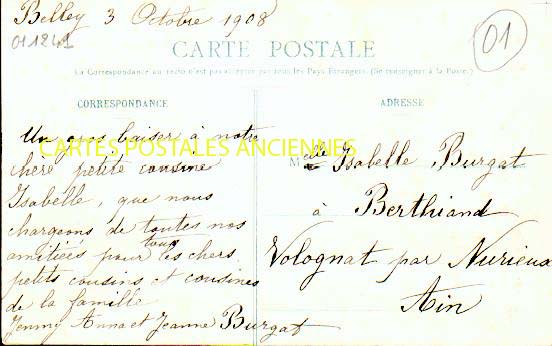 Belley 3 Octobre 1908
011241
01
CARTE POSTALE
La Correspondance au recto n'est pas acceptée par tous les Pays Etrangers. (Se renseigner à la Poste.)
CORRESPONDANCE
Un gros baiser à notre
chère petite cousine
Isabelle, que nous
chargeons de toutes nos
amitiés pour tous les chers
petits cousins et cousines
de la famille
Jenny Anna et Jeanne Burgat
CARTES POSTALES ANCIENNES
ADRESSE
Melle Isabelle Burgat
à Berthiand
Volognat par Nurieux
Ain